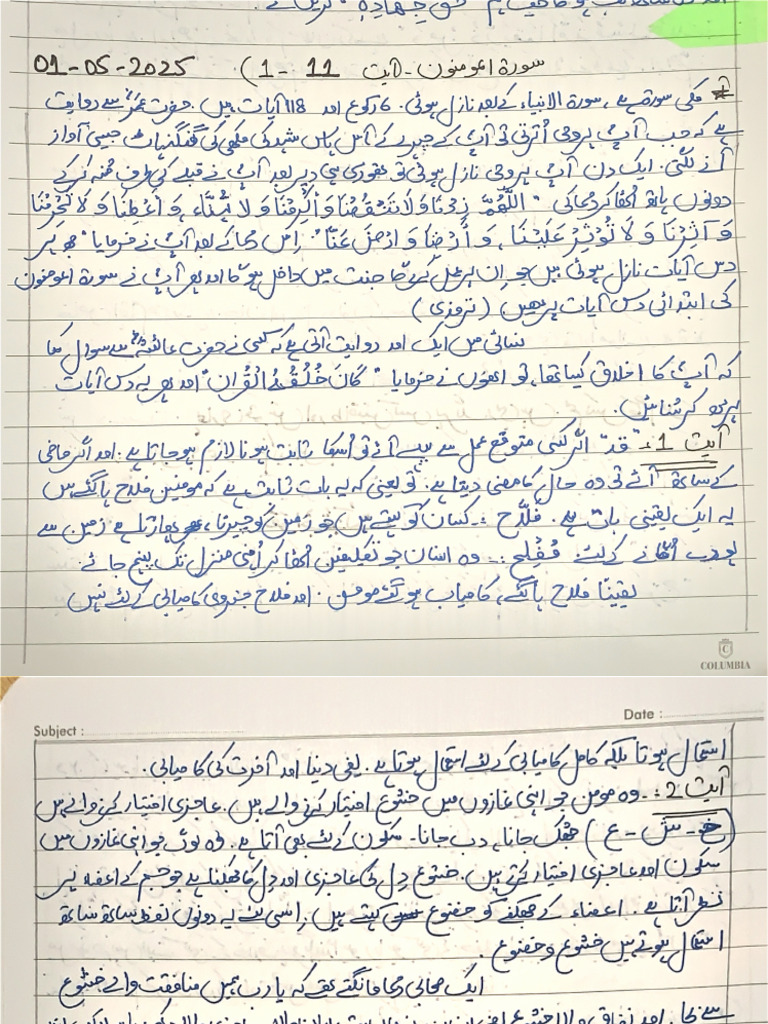 سورۃ المومنون - آیت 11 - 1) 01-05-2025
مکی سورۃ ہے، سورۃ الانبیاء کے بعد نازل ہوئی. 6 رکوع اور 118 آیات ہیں. حضرت عمرؓ سے روایت
ہے کہ جب آپؐ پر وحی اُترتی تو آپؐ کے چہرے کے آس پاس شہد کی مکھی کی گنگناہٹ جیسی آواز
آنے لگتی. ایک دن آپؐ پر وحی نازل ہوئی تو تھوڑی ہی دیر بعد آپؐ نے قبلے کی طرف منہ کرکے
دونوں ہاتھ اُٹھا کر دعا کی "اَللّٰھُمَّ زِدْنَا وَلَا تَنْقُصْنَا وَاَکْرِمْنَا وَلَا تُہِنَّاء وَ اَعْطِنَا وَ لَا تَحْرِمْنَا
وَ آثِرْنَا وَ لَا تُوْثِرْ عَلَیْنَا، وَ أَرْضِنَا وَ ارْضَ عَنَّا". اِس دعا کے بعد آپؐ نے فرمایا "مجھ پر
دس آیات نازل ہوئی ہیں جو اِن پر عمل کرے گا جنت میں داخل ہو گا اور پھر آپؐ نے سورۃ المومنون
کی ابتدائی دس آیات پڑھیں (ترمذی)
نسائی میں ایک اور روایت آتی ہے کہ کسی نے حضرت عائشہؓ سے سوال کیا
کہ آپؐ کا اخلاق کیسا تھا، تو اُنھوں نے فرمایا "کَانَ خُلُقُہُ الْقُرآن" اور پھر یہ دس آیات
پڑھ کر سنائیں.
آیت 1:- "قد" اگر کسی متوقع عمل سے پہلے آئے تو اُسکا ثابت ہونا لازم ہو جاتا ہے. اور اگر ماضی
کے ساتھ آئے تو وہ حال کا معنی دیتا ہے. تو یعنی کہ یہ بات ثابت ہے کہ مومنین فلاح پا گئے ہیں
یہ ایک یقینی بات ہے. فَلّاح :- کسان کو کہتے ہیں جو زمین کو چیرتا، پھاڑتا ہے زمین سے
اُگانے کے لئے. مُفْلِح :- وہ انسان جو تکلیفیں اُٹھا کر اپنی منزل تک پہنچ جائے.
یقیناً فلاح پا گئے، کامیاب ہو گئے مومن. اور فلاح جزوی کامیابی کے لئے نہیں
COLUMBIA
Date :
Subject :
استعمال ہوتا بلکہ کامل کامیابی کے لئے استعمال ہوتا ہے. یعنی دنیا اور آخرت کی کامیابی.
آیت 2:- وہ مومن جو اپنی نمازوں میں خشوع اختیار کرنے والے ہیں. عاجزی اختیار کرنے والے ہیں
(خ - ش - ع) جھک جانا، دب جانا. سکون کے لئے بھی آتا ہے. وہ لوگ جو اپنی نمازوں میں
سکون اور عاجزی اختیار کرتے ہیں. خشوع دِل کی عاجزی اور دِل کا جھکنا ہے جو جسم کے اعضاء پر
نظر آتا ہے. اعضاء کے جھکنے کو خضوع کہتے ہیں. اِسی لئے یہ دونوں لفظ ساتھ ساتھ
استعمال ہوتے ہیں خشوع و خضوع.
ایک صحابی دعا مانگتے تھے کہ یا رب ہمیں منافقت والے خشوع